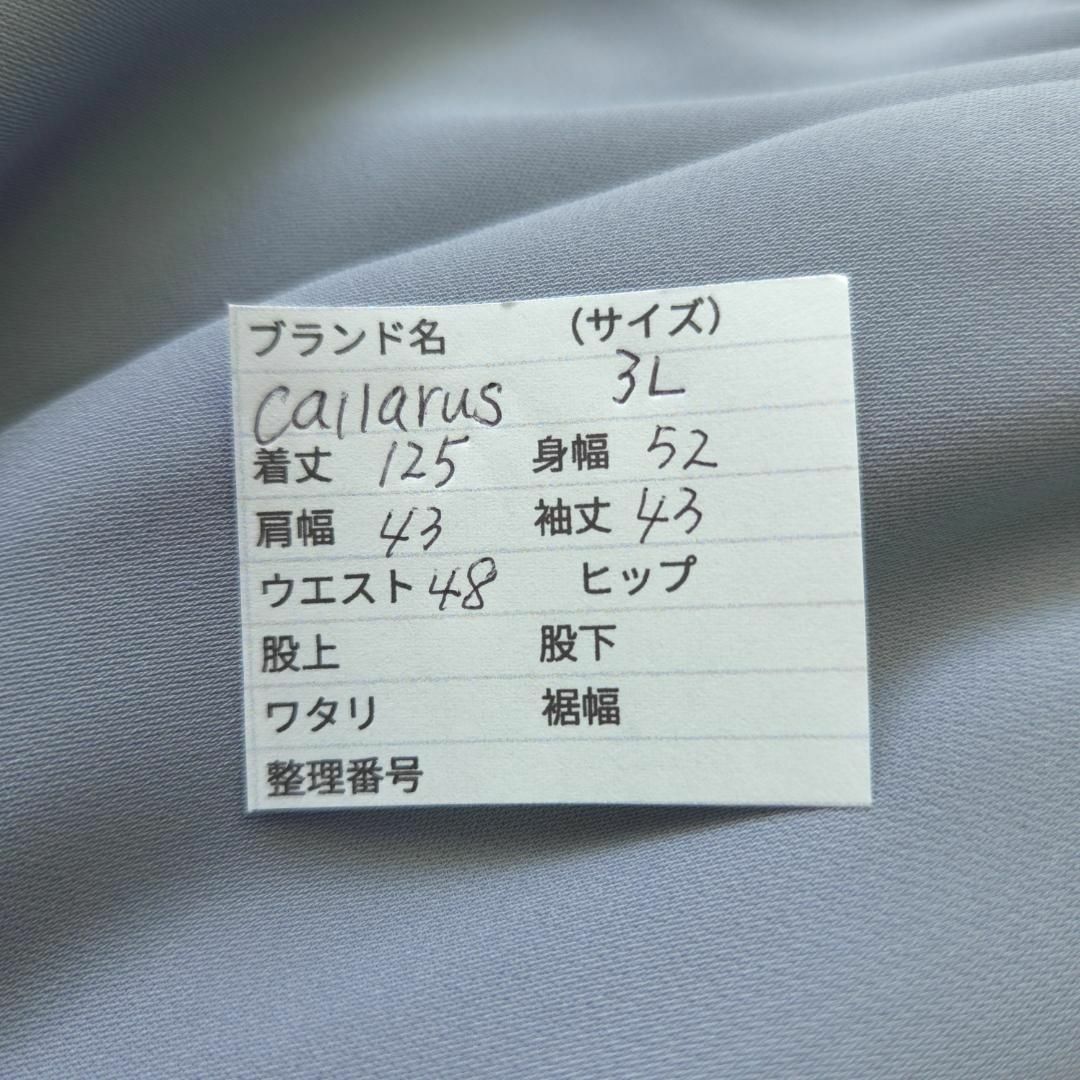 ブランド名 (サイズ)
Callarus 3L
着丈 125 身幅 52
肩幅 43 袖丈 43
ウエスト 48 ヒップ
股上 股下
ワタリ 裾幅
整理番号